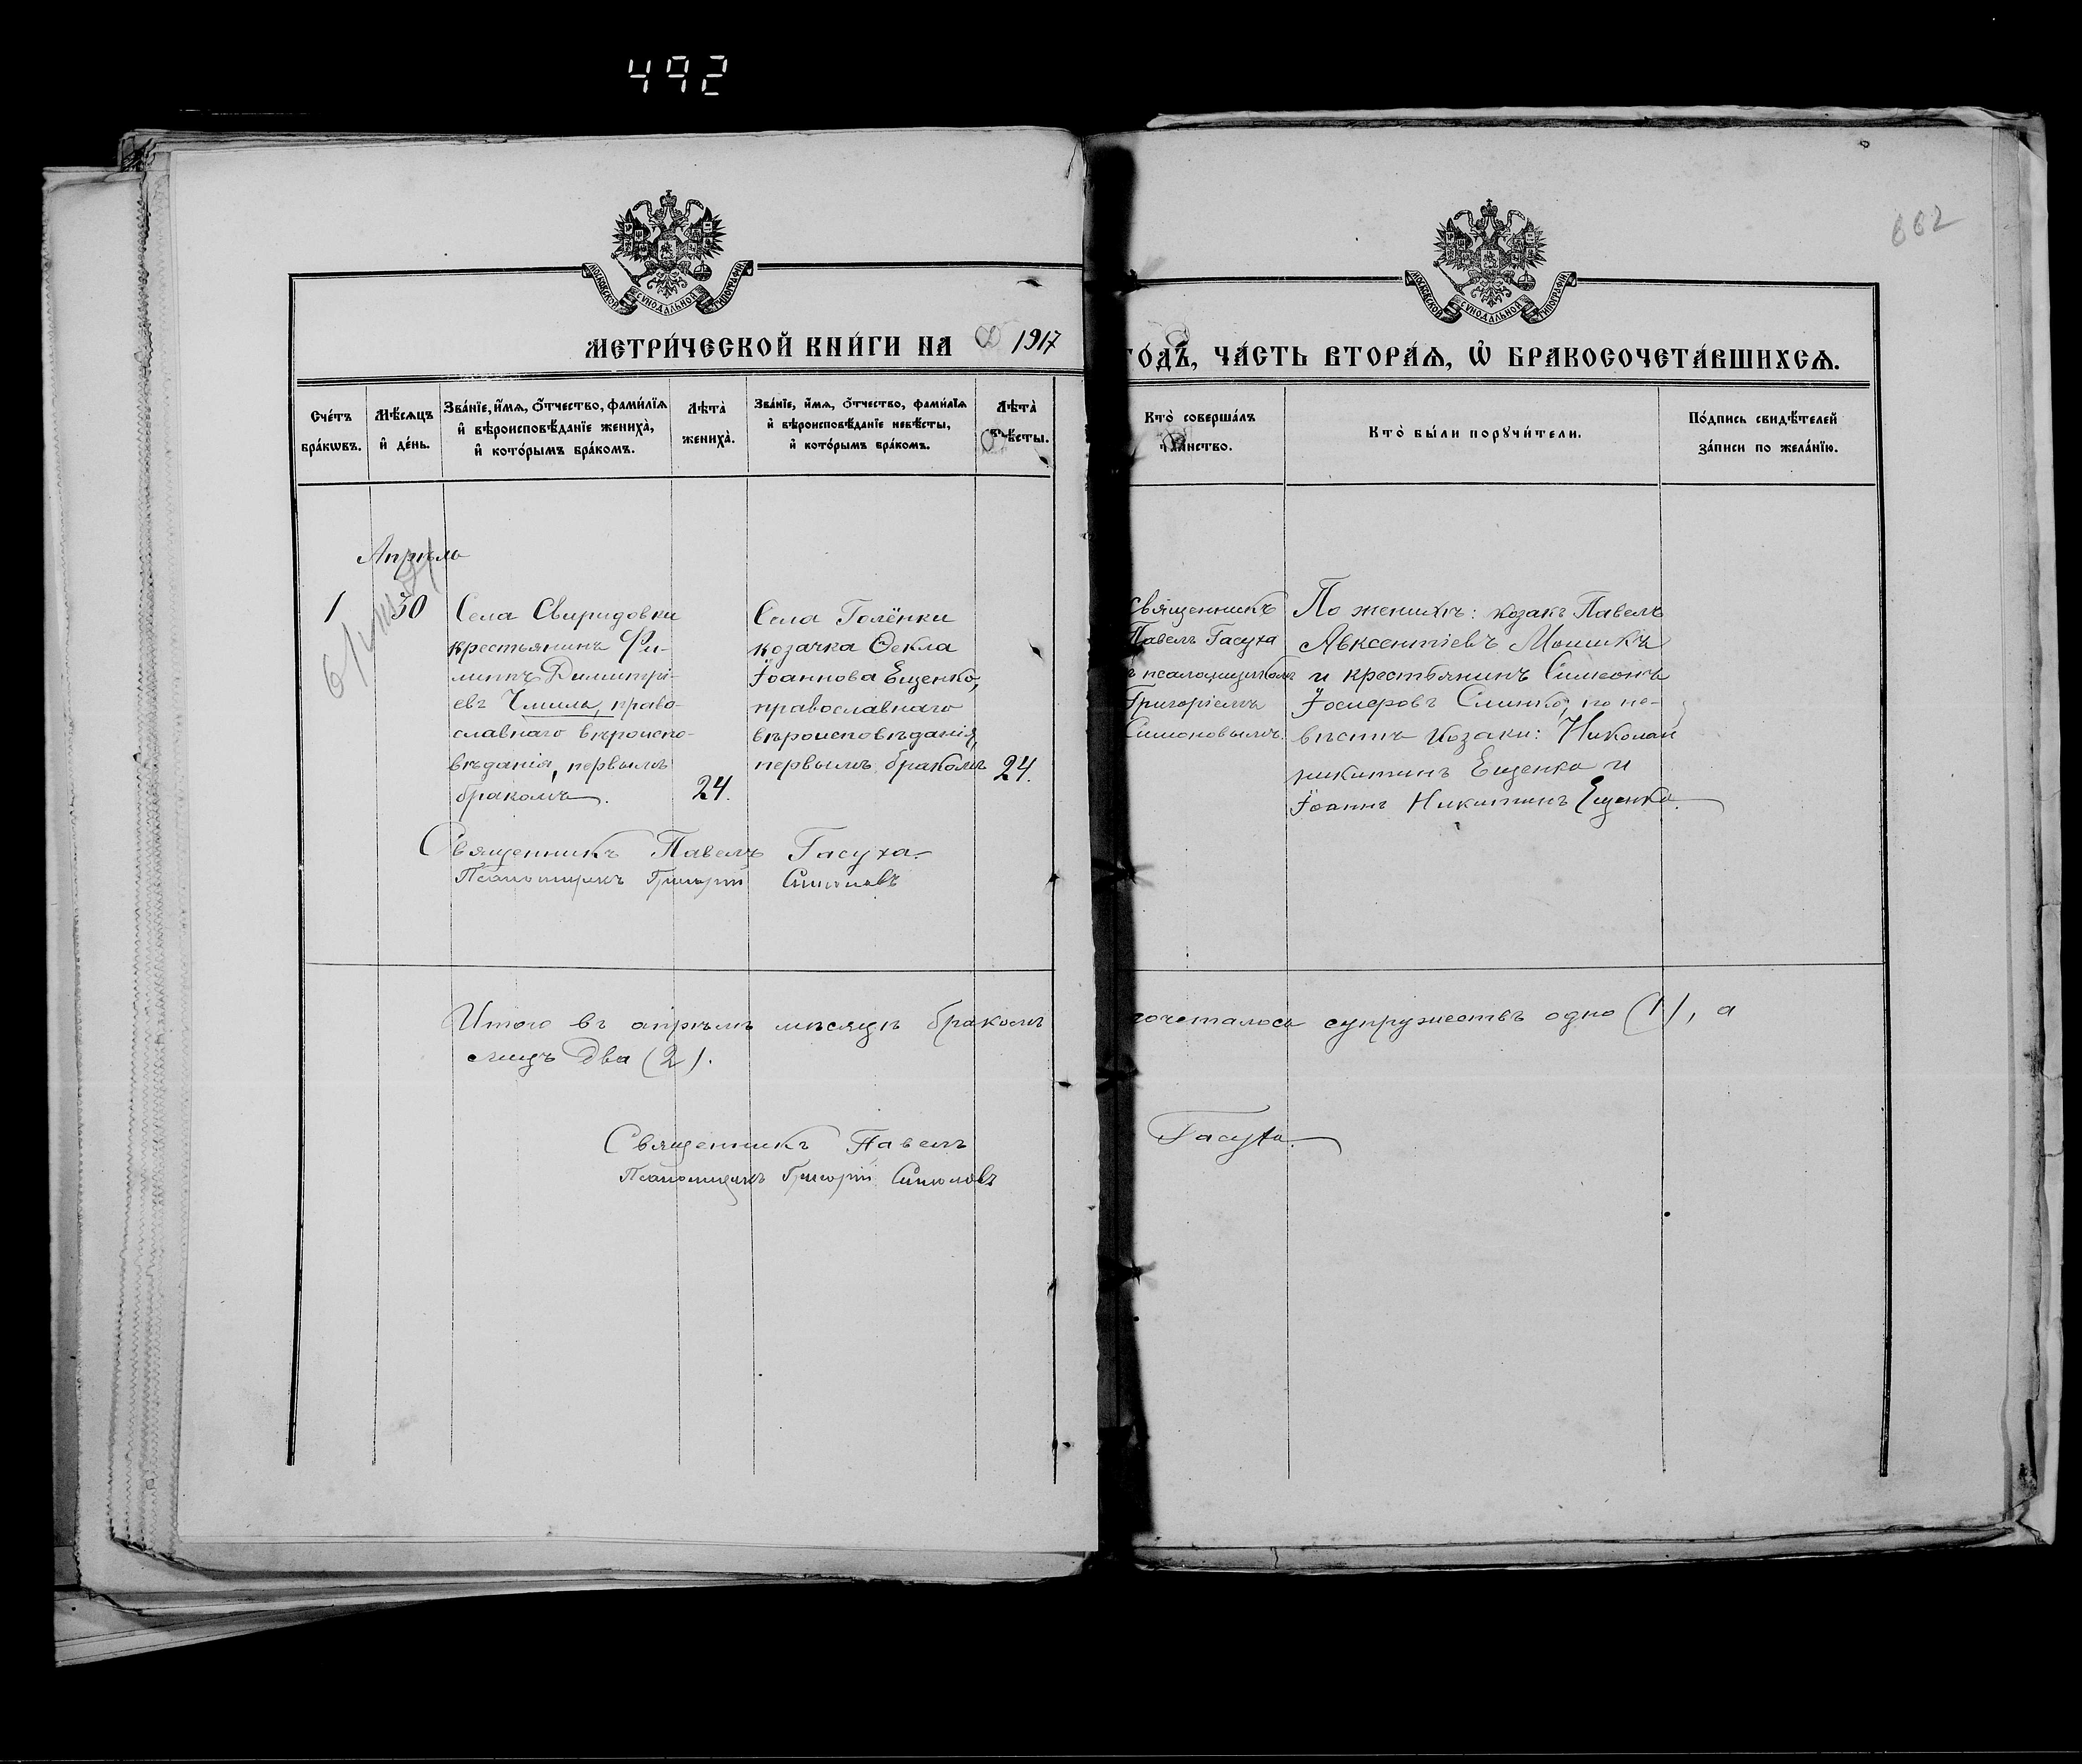 492
662
МЕТРИ́ЧЕСКОЙ КНИ́ГИ НА 1917
ГО́ДЪ, ЧА́СТЬ ВТОРА́Ѧ, Ѡ҆ БРАКОСОЧЕТА́ВШИХСѦ.
Сче́тъ бра́кѡвъ.
Мѣ́сѧцъ и҆ де́нь.
Зва́нїе, и҆́мѧ, ѻ҆́тчество, фами́лїѧ
и҆ вѣроисповѣ́данїе жениха̀,
и҆ кото́рымъ бра́комъ.
Лѣта̀ жениха̀.
Зва́нїе, и҆́мѧ, ѻ҆́тчество, фами́лїѧ
и҆ вѣроисповѣ́данїе невѣ́сты,
и҆ кото́рымъ бра́комъ.
Лѣта̀
Кто̀ соверша́лъ
та́инство.
Кто̀ бы́ли порꙋчи́тели.
По́дпись свидѣ́телей
за́писи по жела́нїю.
Апрѣль
1
30
Села Свиридовки
крестьянинъ Фи-
липпъ Димитрі-
евъ Чмиль, право-
славнаго вѣроиспо-
вѣданія, первымъ
бракомъ.
24.
Села Голёнки
козачка Ѳекла
Іоаннова Ещенко,
православнаго
вѣроисповѣданія,
первымъ бракомъ
24.
Священникъ
Павелъ Гасуха
съ псаломщикомъ
Григоріемъ
Симоновымъ.
По женихѣ: козакъ Павелъ
Авксентіевъ Мошикъ
и крестьянинъ Симеонъ
Іосифовъ Слинко; по не-
вѣстѣ козаки: Николай
Никитинъ Ещенко и
Іоаннъ Никитинъ Ещенко.
Священникъ Павелъ Гасуха.
Псаломщикъ Григорій Симоновъ
Итого въ апрѣлѣ мѣсяцѣ бракомъ сочеталось супружествъ одно (1), а
лицъ два (2).
Священникъ Павелъ Гасуха.
Псаломщикъ Григорій Симоновъ